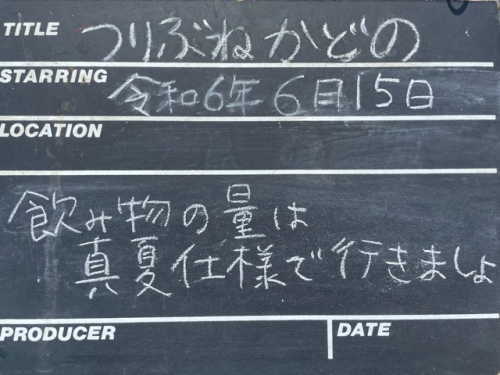 TITLE つりぶねかどの
STARRING 令和6年6月15日
LOCATION
飲み物の量は
真夏仕様で行きましょ
PRODUCER DATE